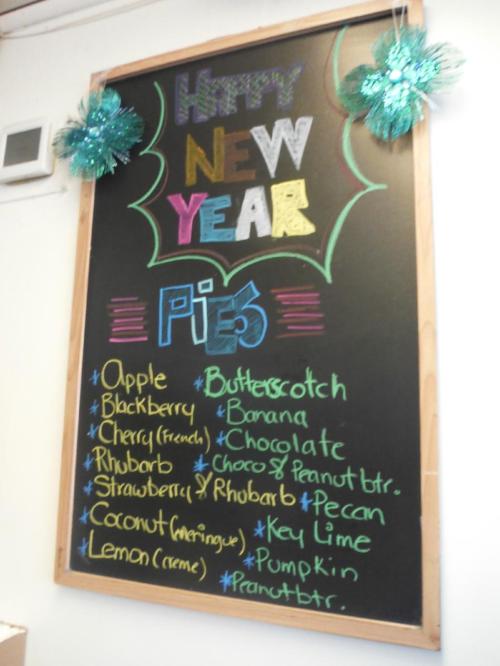 HAPPY
NEW
YEAR
PiES
*Apple
*Blackberry
*Cherry (French)
*Rhubarb
*Strawberry & Rhubarb
*Coconut (meringue)
*Lemon (creme)
*Butterscotch
*Banana
*Chocolate
*Choco & Peanut btr.
*Pecan
*Key Lime
*Pumpkin
*Peanut btr.